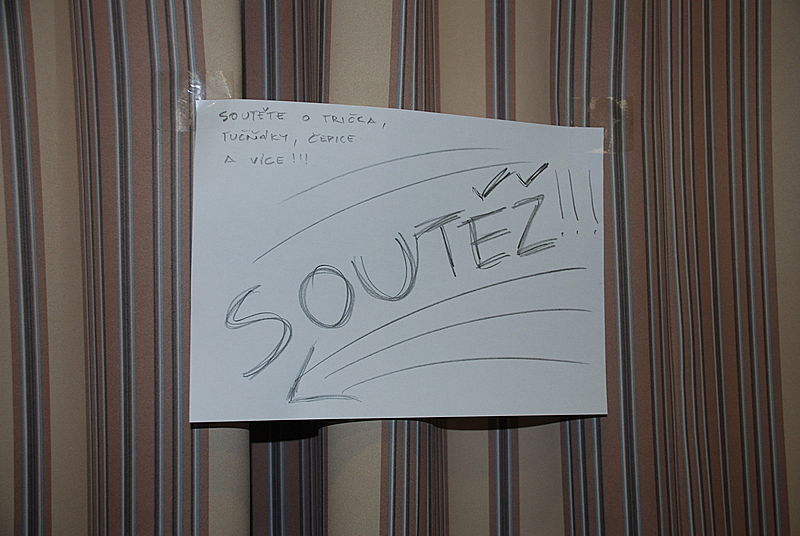 SOUTĚTE O TRIČKA,
TUČŇÁKY, ČEPICE
A VÍCE!!!
SOUTĚŽ!!!